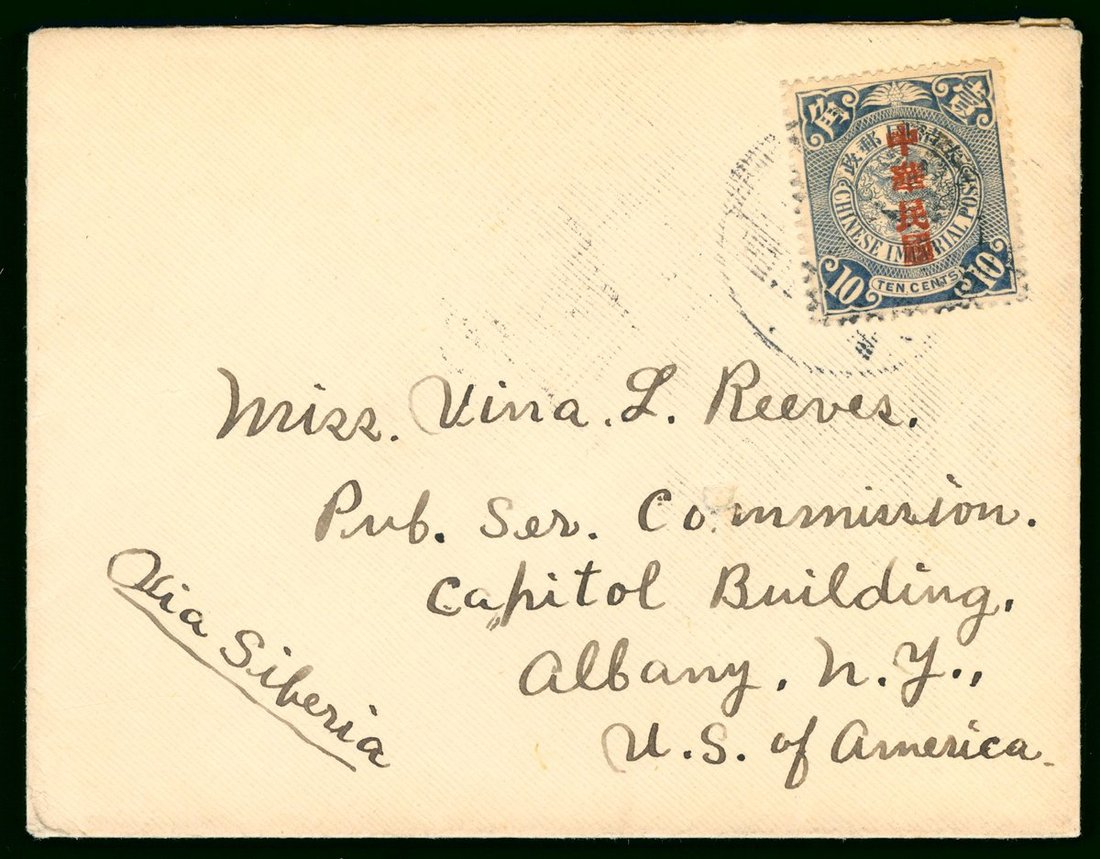 角 壹
大清國郵政
中華民國
CHINESE IMPERIAL POST
10 TEN CENTS 10
Miss. Vina. L. Reeves.
Pub. Ser. Commission.
Capitol Building,
Albany, N.Y.,
U.S. of America.
Via Siberia